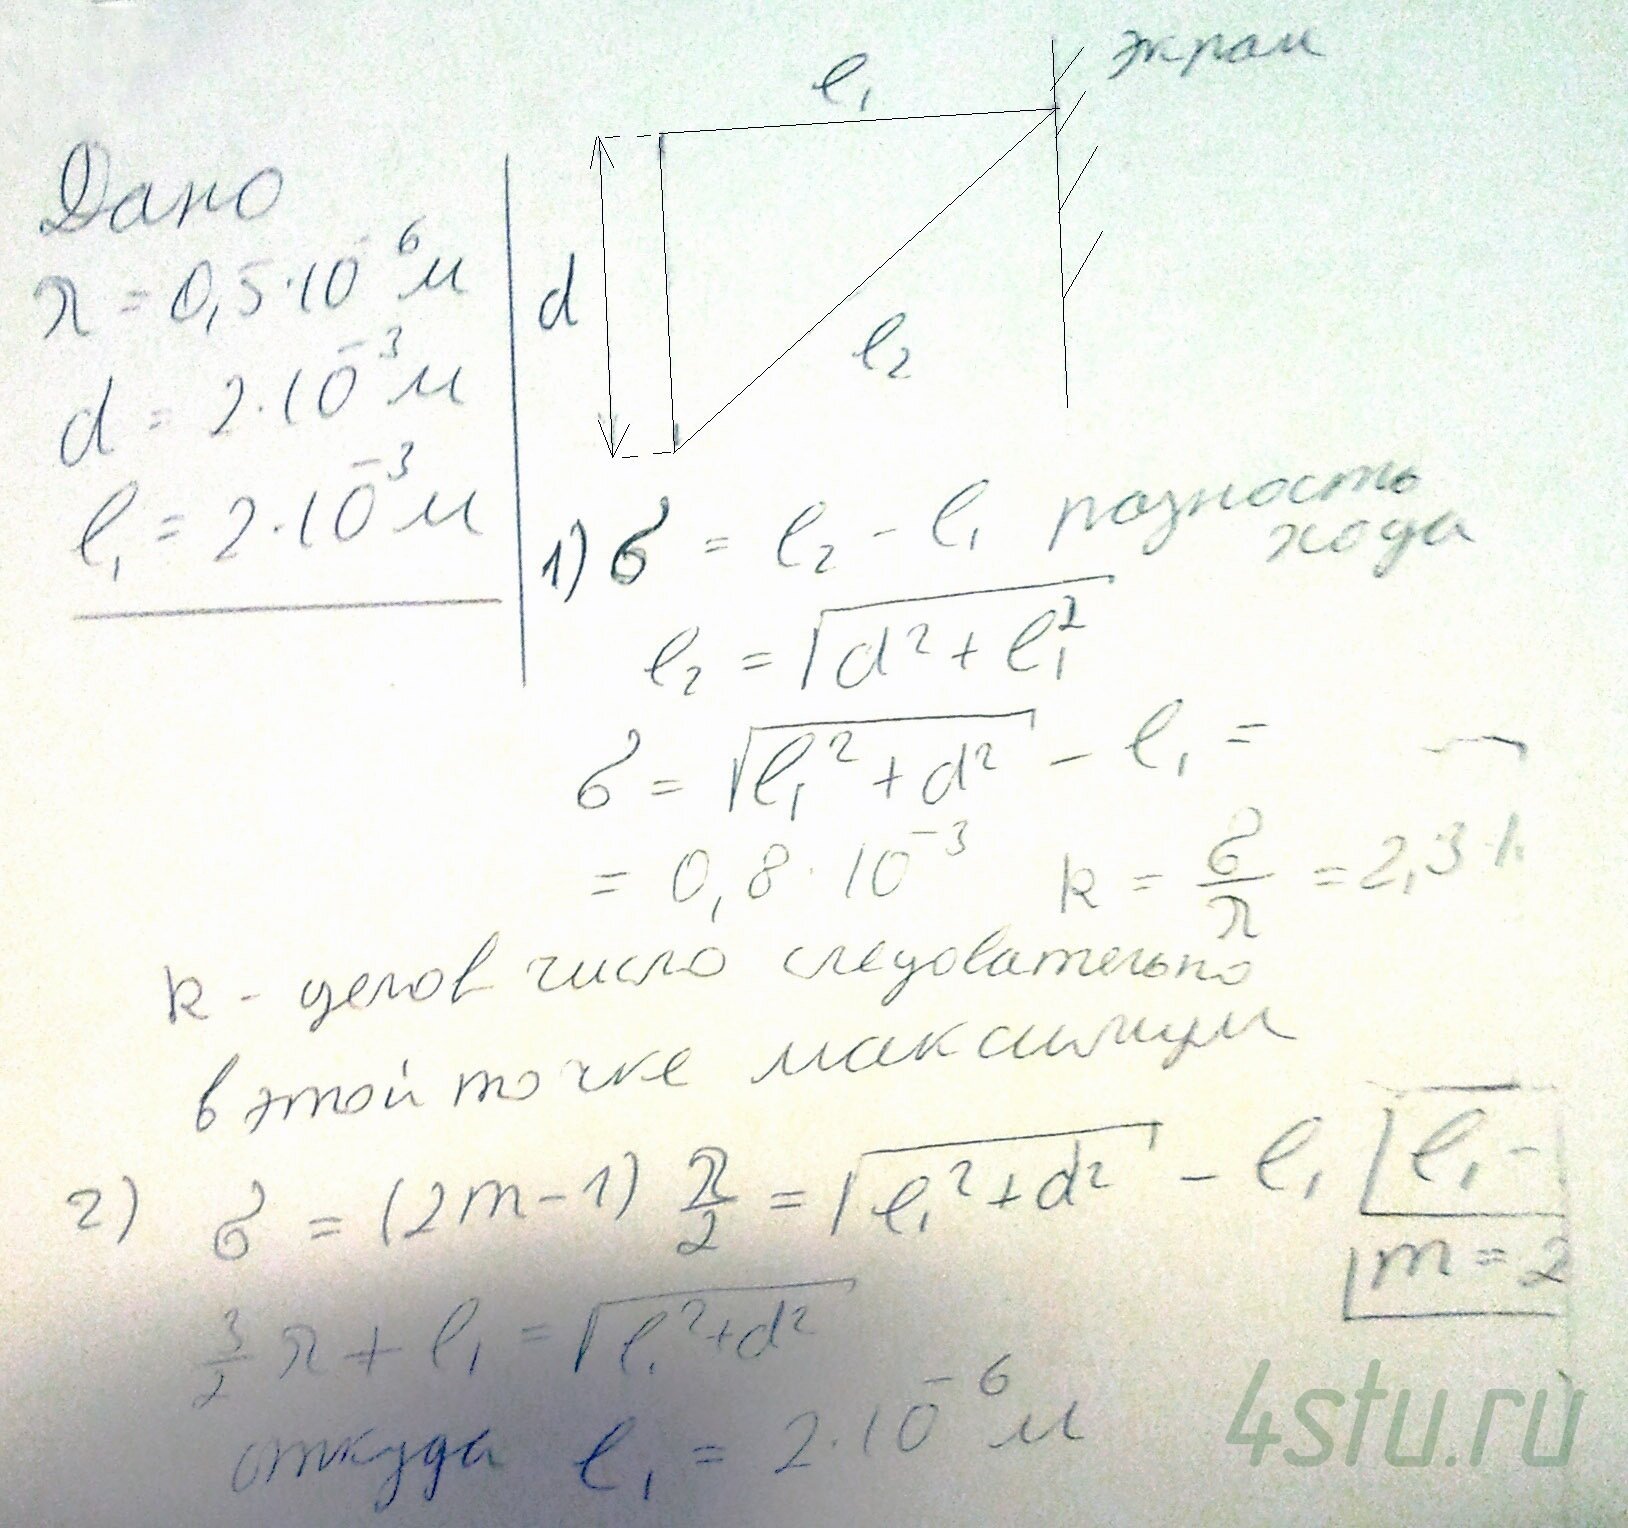 l₁ экран
Дано
λ = 0,5·10⁻⁶ м
d = 2·10⁻³ м
l₁ = 2·10⁻³ м
d
l₂
1) δ = l₂ - l₁ разность
хода
l₂ = √(d² + l₁²)
δ = √(l₁² + d²) - l₁ =
= 0,8·10⁻³ k = δ/λ = 2,3
k - целов число следовательно
в этой точке максимум
2) δ = (2m-1) λ/2 = √(l₁² + d²) - l₁ l₁ -
m = 2
3/2 λ + l₁ = √(l₁² + d²)
откуда l₁ = 2·10⁻⁶ м
4stu.ru